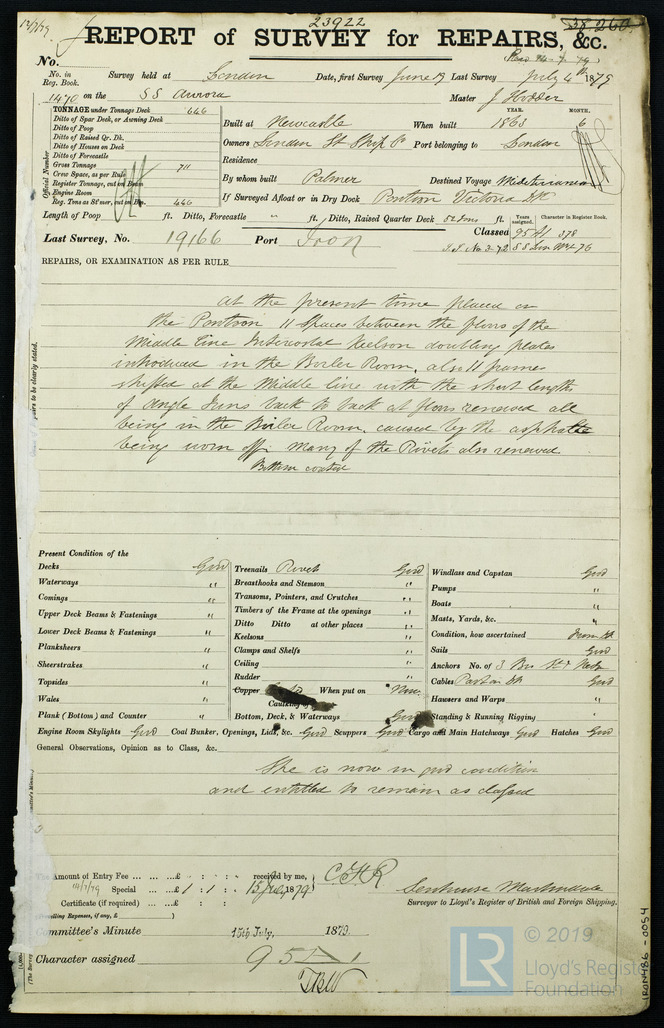 12/7/79
23922
38.260
REPORT of SURVEY for REPAIRS, &c.
No.
No. in Reg. Book. Survey held at London Date, first Survey June 19 Last Survey July 4th 1879
1470 on the SS Aurora Master J Hodder
TONNAGE under Tonnage Deck 646
Ditto of Spar Deck, or Awning Deck
Ditto of Poop
Ditto of Raised Qr. Dk.
Ditto of Houses on Deck
Ditto of Forecastle
Gross Tonnage 711
Crew Space, as per Rule
Register Tonnage, cut on Beam
Engine Room
Reg. Tons as St'mer, cut on Bm. 446
Official Number
Built at Newcastle When built YEAR. 1863 MONTH. 6
Owners London St Ship Co Port belonging to London
Residence
By whom built Palmer Destined Voyage Mediterranean
If Surveyed Afloat or in Dry Dock Pontoon Victoria Dk
Length of Poop ft. Ditto, Forecastle " ft., Ditto, Raised Quarter Deck ft.
Years assigned. Character in Register Book.
Last Survey, No. 19166 Port Iron Classed 95A1 3.78
REPAIRS, OR EXAMINATION AS PER RULE
At the present time placed on
the Pontoon 11 spaces between the floors of the
Middle line Intercostal Keelson doubling plates
introduced in the Boiler Room, also 11 frames
shifted at the Middle line with the short lengths
of Angle Irons back to back at floors renewed all
being in the Boiler Room, caused by the asphalte
being worn off. Many of the Rivets also renewed
Bottom coated
Present Condition of the
Decks Good
Waterways "
Comings "
Upper Deck Beams & Fastenings "
Lower Deck Beams & Fastenings "
Planksheers "
Sheerstrakes "
Topsides "
Wales "
Plank (Bottom) and Counter "
Treenails Rivets Good
Breasthooks and Stemson "
Transoms, Pointers, and Crutches "
Timbers of the Frame at the openings "
Ditto Ditto at other places "
Keelsons "
Clamps and Shelfs "
Ceiling "
Rudder "
Copper When put on Now
Caulking of
Bottom, Deck, & Waterways Good
Windlass and Capstan Good
Pumps "
Boats "
Masts, Yards, &c. "
Condition, how ascertained From Dk
Sails Good
Anchors No. of 3 Brs
Cables Good
Hawsers and Warps "
Standing & Running Rigging "
Engine Room Skylights Good Coal Bunker, Openings, Lids, &c. Good Scuppers Good Cargo and Main Hatchways Good Hatches Good
General Observations, Opinion as to Class, &c.
She is now in good condition
and entitled to remain as classed
The Amount of Entry Fee £ : : received by me, CHR
14/7/79 Special £1 : 1 : 15 July 1879
Certificate (if required) £ : :
(Travelling Expenses, if any, £ )
Senhouse Martindale
Surveyor to Lloyd's Register of British and Foreign Shipping.
Committee's Minute 15th July, 1879.
Character assigned 95A1
TBW
IRON486-0054
LR
© 2019
Lloyd's Register
Foundation